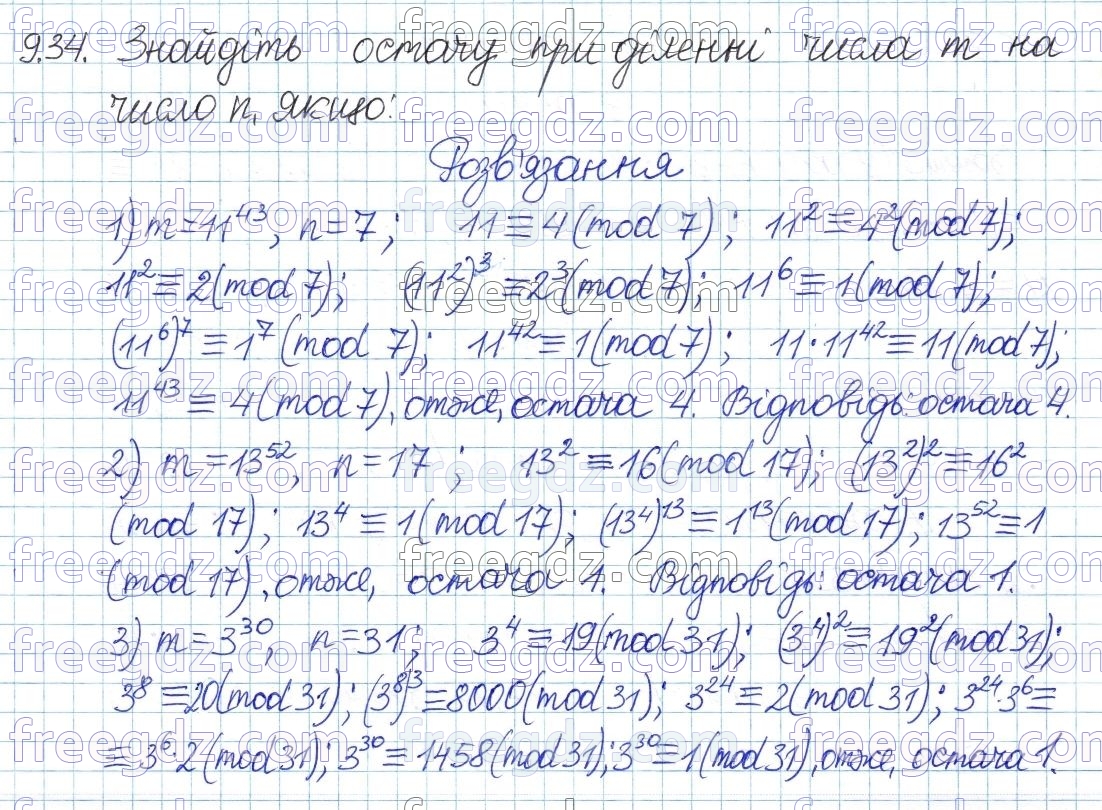 9.34. Знайдіть остачу при діленні числа m на
число n, якщо:
Розв'язання
1) m=11⁴³, n=7; 11≡4(mod 7); 11²≡4²(mod 7);
11²≡2(mod 7); (11²)³≡2³(mod 7); 11⁶≡1(mod 7);
(11⁶)⁷≡1⁷(mod 7); 11⁴²≡1(mod 7); 11·11⁴²≡11(mod 7);
11⁴³≡4(mod 7), отже, остача 4. Відповідь: остача 4.
2) m=13⁵², n=17; 13²≡16(mod 17); (13²)²≡16²
(mod 17); 13⁴≡1(mod 17); (13⁴)¹³≡1¹³(mod 17); 13⁵²≡1
(mod 17), отже, остача 1. Відповідь: остача 1.
3) m=3³⁰, n=31; 3⁴≡19(mod 31); (3⁴)²≡19²(mod 31);
3⁸≡20(mod 31); (3⁸)³≡8000(mod 31); 3²⁴≡2(mod 31); 3²⁴·3⁶≡
≡3⁶·2(mod 31); 3³⁰≡1458(mod 31); 3³⁰≡1(mod 31), отже, остача 1.
freegdz.com